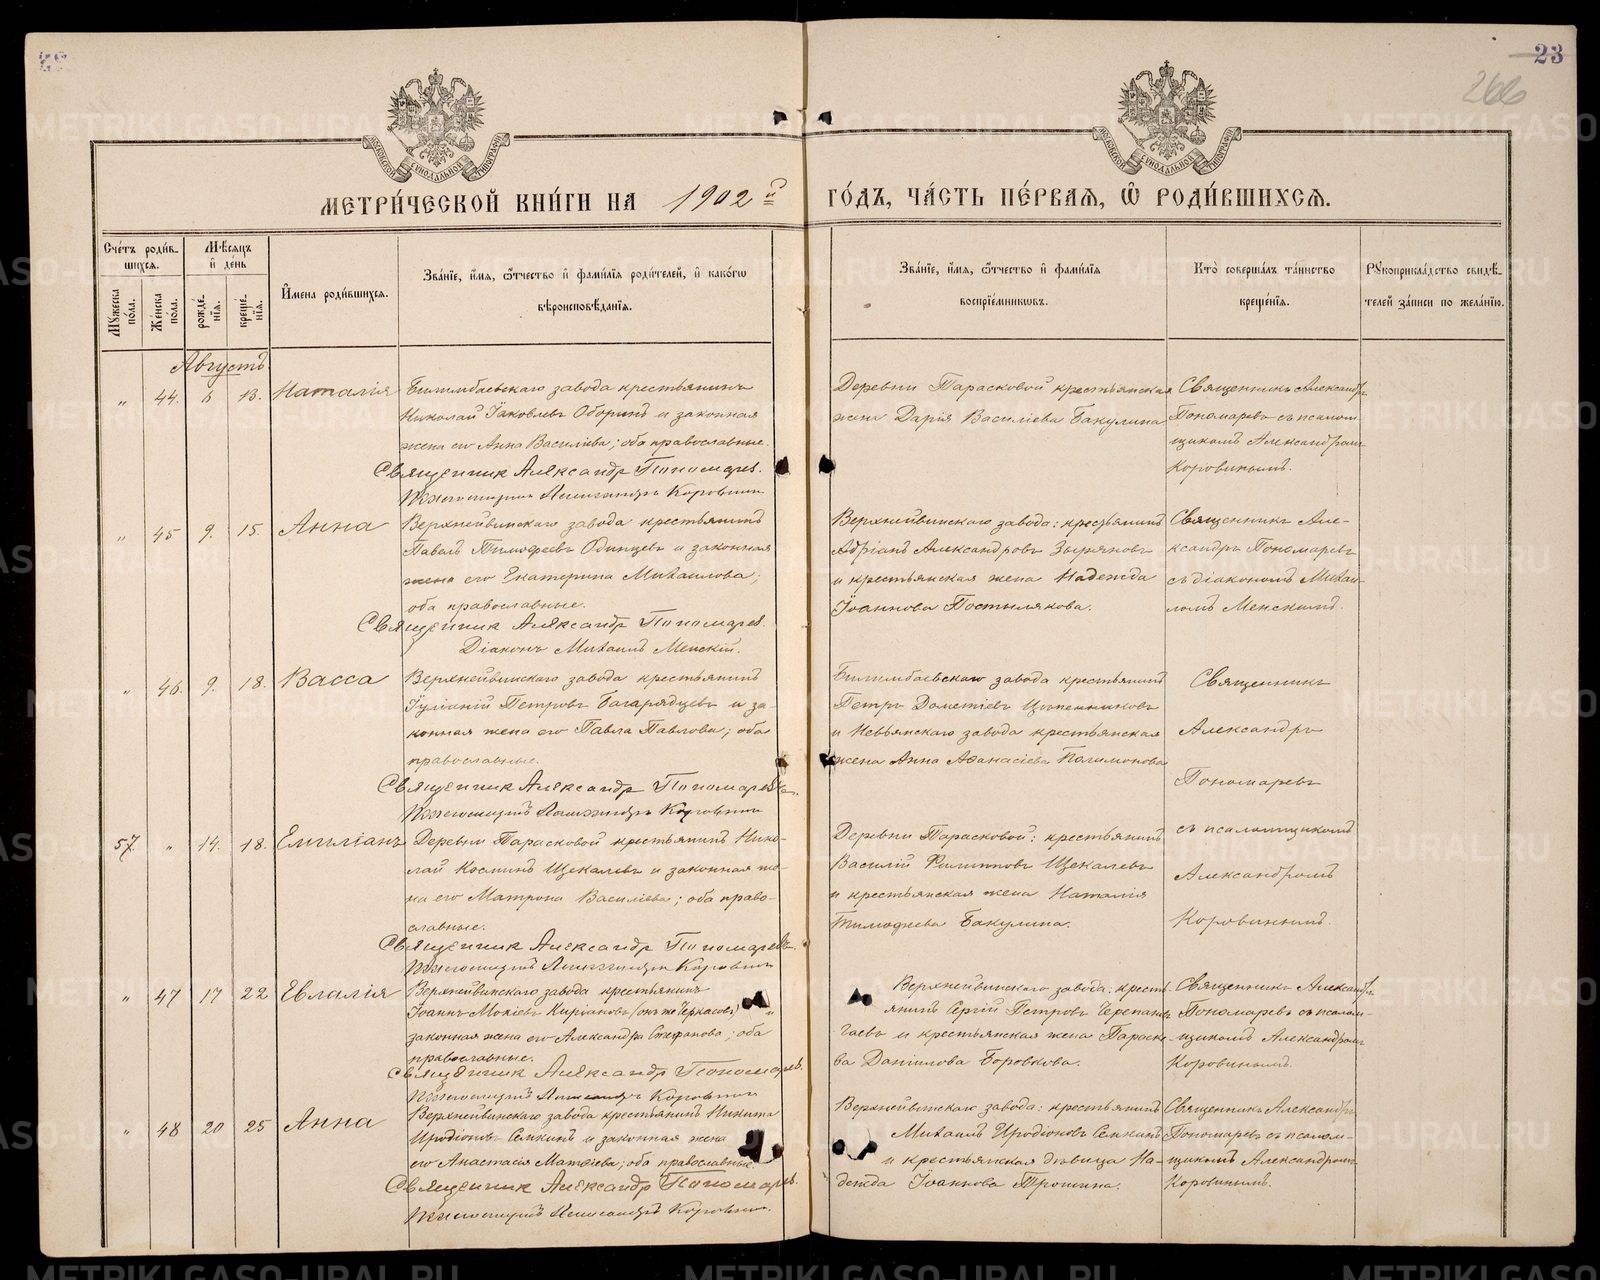 23
266
МОСКОВСКОЙ СУНОДАЛЬНОЙ ТИПОГРАФІИ
МОСКОВСКОЙ СУНОДАЛЬНОЙ ТИПОГРАФІИ
МЕТРИ́ЧЕСКОЙ КНИ́ГИ НА 1902й ГО́ДЪ, ЧА́СТЬ ПЕ́РВАЯ, Ѽ РОДИ́ВШИХСЯ.
Сче́тъ роди́в-
шихся.
Мѣ́сяцъ
и҆ де́нь
Мꙋ́жеска по́ла.
Же́нска по́ла.
рожде́-
нїѧ.
креще́-
нїѧ.
И҆мена роди́вшихся.
Зва́нїе, и҆́мѧ, ѻ҆́тчество и҆ фами́лїѧ роди́телей, и҆ како́гѡ
вѣроисповѣ́данїѧ.
Зва́нїе, и҆́мѧ, ѻ҆́тчество и҆ фами́лїѧ
воспрїе́мникѡвъ.
Кто̀ соверша́лъ та́инство
креще́нїѧ.
Рꙋкоприкла́дство свидѣ́-
телей за́писи по жела́нїю.
Августъ
" 44. 6 13. Наталія
Билимбаевскаго завода крестьянинъ
Николай Іаковлевъ Оборинъ и законная
жена его Анна Василіева; оба православные.
Священник Александр Пономарев.
Псаломщикъ Александръ Коровинъ
Деревни Тарасковой крестьянская
жена Дарія Василіева Бакулина
Священникъ Александръ
Пономаревъ съ псалом
щикомъ Александромъ
Коровинымъ.
" 45 9. 15. Анна
Верхнейвинскаго завода крестьянинъ
Павелъ Тимоѳеевъ Одинцевъ и законная
жена его Екатерина Михаилова;
оба православные.
Священник Александр Пономарев.
Діаконъ Михаилъ Менскій.
Верхнейвинскаго завода: крестьянинъ
Адріанъ Александровъ Зыряновъ
и крестьянская жена Надежда
Іоаннова Постылякова.
Священникъ Але-
ксандръ Пономаревъ
съ діакономъ Михаи-
ломъ Менскимъ.
" 46. 9. 18. Васса
Верхнейвинскаго завода крестьянинъ
Іуліаній Петровъ Багарядцевъ и за-
конная жена его Павла Павлова; оба
православные.
Священник Александр Пономаревъ.
Псаломщикъ Александръ Коровинъ
Билимбаевскаго завода крестьянинъ
Петръ Дометіевъ Цыпенниковъ
и Невьянскаго завода крестьянская
жена Анна Аѳанасіева Поликонова
Священникъ
Александръ
Пономаревъ
57. " 14. 18. Емиліанъ
Деревни Тарасковой крестьянинъ Нико-
лай Косминъ Щекалевъ и законная же-
на его Матрона Василіева; оба право-
славные.
Священник Александр Пономаревъ.
Псаломщикъ Александръ Коровинъ
Деревни Тарасковой: крестьянинъ
Василій Филипповъ Щекалевъ
и крестьянская жена Наталія
Тимоѳиева Бакулина.
съ псаломщикомъ
Александромъ
Коровинымъ.
" 47 17 22 Евлалія
Верхнейвинскаго завода крестьянинъ
Іоаннъ Мокіевъ Киріановъ (онъ же Черкасовъ) и
законная жена его Александра Стефанова; оба
православные.
Священник Александр Пономарев.
Псаломщикъ Александръ Коровинъ
Верхнейвинскаго завода: кресть-
янинъ Сергій Петровъ Черепан-
гаевъ и крестьянская жена Параске-
ва Даніилова Боровкова.
Священникъ Александръ
Пономаревъ съ псалом-
щикомъ Александромъ
Коровинымъ.
" 48 20 25 Анна
Верхнейвинскаго завода крестьянинъ Никита
Иродіоновъ Семкинъ и законная жена
его Анастасія Матвіева; оба православные.
Священник Александр Пономарев.
Псаломщикъ Александръ Коровинъ.
Верхнейвинскаго завода: крестьянинъ
Михаилъ Иродіоновъ Семкинъ
и крестьянская дѣвица На-
дежда Іоаннова Трошина.
Священникъ Александръ
Пономаревъ съ псалом-
щикомъ Александромъ
Коровинымъ.
METRIKI.GASO-URAL.RU